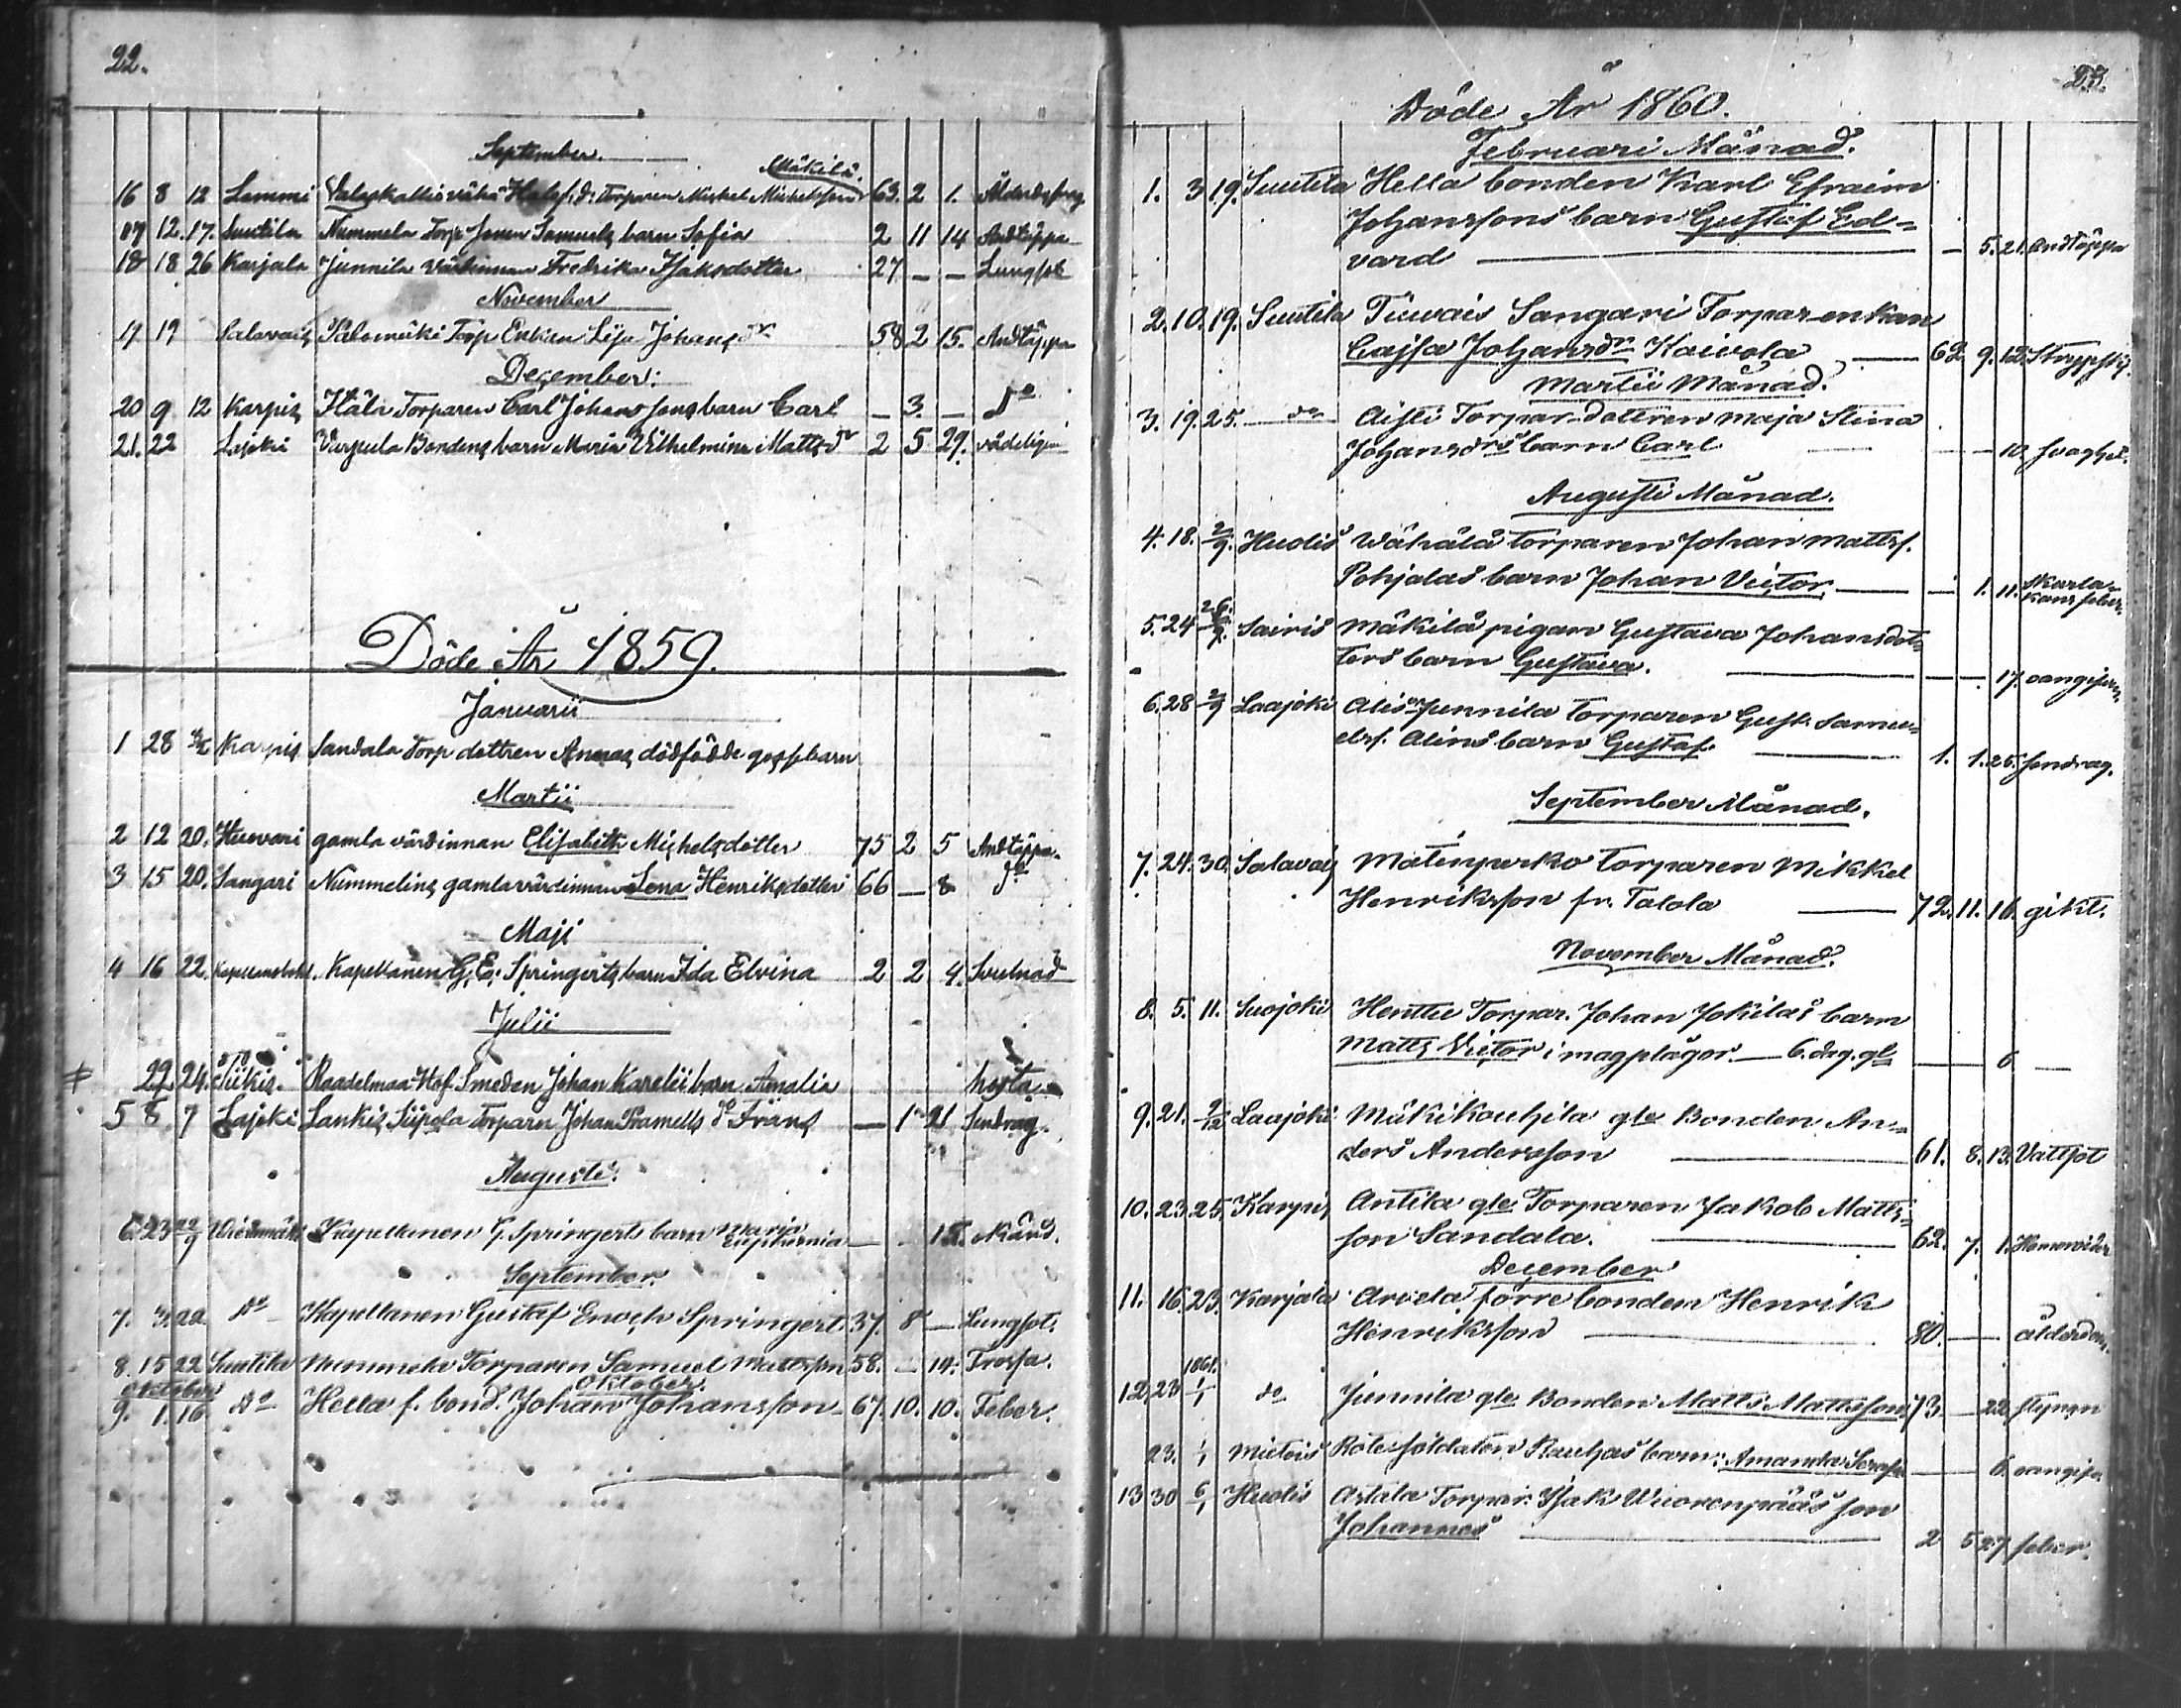 22.
September.
Mäkilä.
16 8 12 Lammi Torparen Michel Michelsson 63. 2 1.
17 12. 17. Suutila Nummela Torp Samuels barn Sofia 2 11 14 Andtäppa
18 18 26 Karjala Junnila Värdinnan Fredrika Isaksdotter 27 — — Lungsot
November
19 19 Salavais Palomäki Torp Enkan Lisa Johans dr 58 2 15. Andtäppa
December:
20 9 12 Karpis Torparen Carl Johanssons barn Carl — 3. — Do
21. 22 Lajoki Bondens barn Maria Vilhelmina Matts dr 2 5 29. vådeligen
Döde År 1859.
Januarii
1 28 Karpis Sandala Torp dottren Annas dödfödde gossebarn
Martii
2 12 20. gamla värdinnan Elisabeth Michelsdotter 75 2 5 Andtäppa.
3 15 20. Sangari Nummelins gamla värdinnan Lena Henriksdotter 66 — 8 Do
Maji
4 16 22. Kapellanen G. E. Springerts barn Ida Elvina 2 2 4. Svulnad
Julii
29. 24. Raadelmaa Hof Smeden Johan Karelii barn Amalia hosta
5 8 7 Lajoki Lankis Siipola Torparen Johan Frans — 1 21 Sendrag.
Augusti.
6. 23 22/9 Kapellanen G. Springerts barn Maria
Euphemia — 15.
September.
7. 22 Do Kapellanen Gustaf Enoch Springert. 37. 8 — Lungsot.
8. 15 22 Suutila Torparen Samuel Mattsson 58. — 14. Trossa.
Oktober Oktober.
9. 1. 16 Do Hella f. bond. Johan Johansson 67. 10. 10. Feber.
23.
Döde År 1860.
Februari Månad.
1. 3 19. Suutila Hella bonden Karl Efraim
Johanssons barn Gustaf Ed=
vard — — 5. 21. Andtäppa
2. 10. 19. Suutila Tuwais Sangari Torparenkan
Cajsa Johansdr Kaivola — 62. 9. 12. Strypsj.
Martii Månad.
3. 19. 25. do Aisti Torpar-dottren Maja Stina
Johansdrs barn Carl — — 10. svaghet.
Augusti Månad.
4. 18. 2/9. Huolis Wähälä torparen Johan Matts.
Pohjalas barn Johan Victor. — — 1. 11. skarla=
kans feber.
5. 24 Sairis Mäkilä pigan Gustava Johansdot=
ters barn Gustava. — — 17. oangifven.
6. 28 2/9 Laajoki Alis Junnila torparen Gust. Samu=
elss. Alins barn Gustaf. — 1. 1. 25. sendrag.
September Månad.
7. 24. 30. Salavais Matinperko torparen Mikkel
Henriksson fr. Talola — 72. 11. 16. gikt.
November Månad.
8. 5. 11. Suojoki Henttu Torpar. Johan Jokilas barn
Matts Victor i magplågor. — 6. dag. gl — 6 —
9. 21. 2/12 Laajoki Mäkikouhila gle Bonden An=
ders Andersson — 61. 8. 13. Vattsot
10. 23. 25. Karpis Antila gle Torparen Jakob Matts=
son Sandala. — 62. 7. 1.
December
11. 16. 23. Karjala Arvela förre bonden Henrik
Henriksson — 80. — ålderdom.
1861.
12. 23 1/1 do Junnila gle Bonden Matts Mattsson 73. — 22.
23. 1/1 Mietois Rotesoldaten Rauhas barn: Amanda — 6. oangifv.
13 30 6/1 Huolis Astala Torpar. Isak Wuorenpääs son
Johannes — 2 5 27 feber.